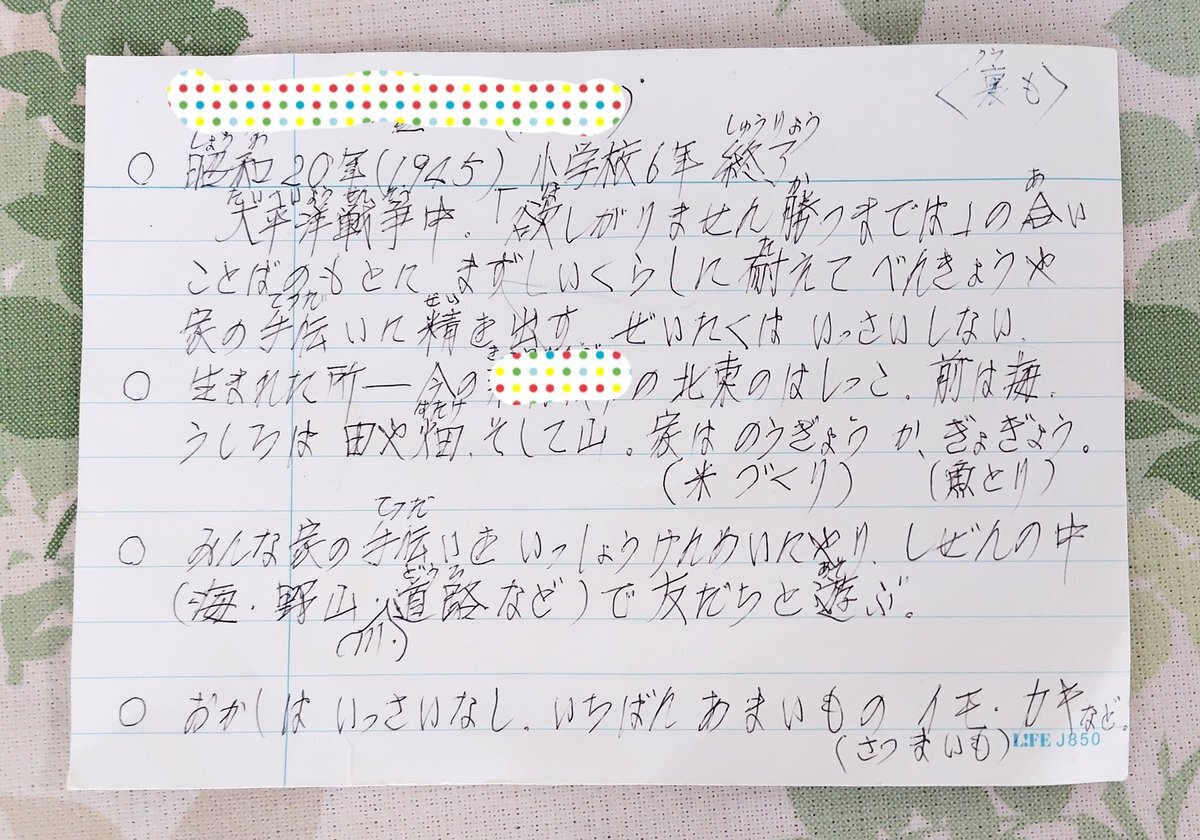 〈裏も〉
うら
しょうわ しゅうりょう
○ 昭和20年(1945) 小学校6年 終了
たいへいようせんそう ほ か あ
太平洋戦争中。「欲しがりません勝つまでは」の合い
た
ことばのもとに まずしいくらしに耐えて べんきょうや
てつだ せい
家の手伝いに精を出す。ぜいたくは いっさいしない.
○ 生まれた所―今の の北東のはしっこ. 前は海.
はたけ
うしろは 田や畑. そして山。家は のうぎょう か、ぎょぎょう。
(米づくり) (魚とり)
てつだ
○ みんな家の手伝いを いっしょうけんめいにやり. しぜんの中
どうろ あそ
(海・野山・道路など)で友だちと遊ぶ。
(川・)
○ おかしは いっさいなし. いちばん あまいもの イモ・カキなど。
(さつまいも)
L!FE J850